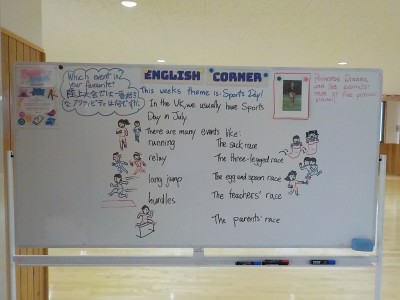 Which event is
your favourite?
ENGLISH CORNER
This weeks theme is: Sports Day!
In the UK, we usually have Sports
Day in July.
There are many events like:
running
The sack race
relay
The three-legged race
The egg and spoon race
long jump
hurdles
The teachers' race
The parents' race
Princess Diana